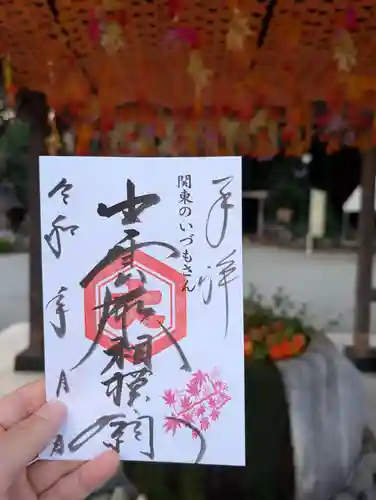 奉拝
関東のいづもさん
出雲大社相模分祠
令和 年 月 日